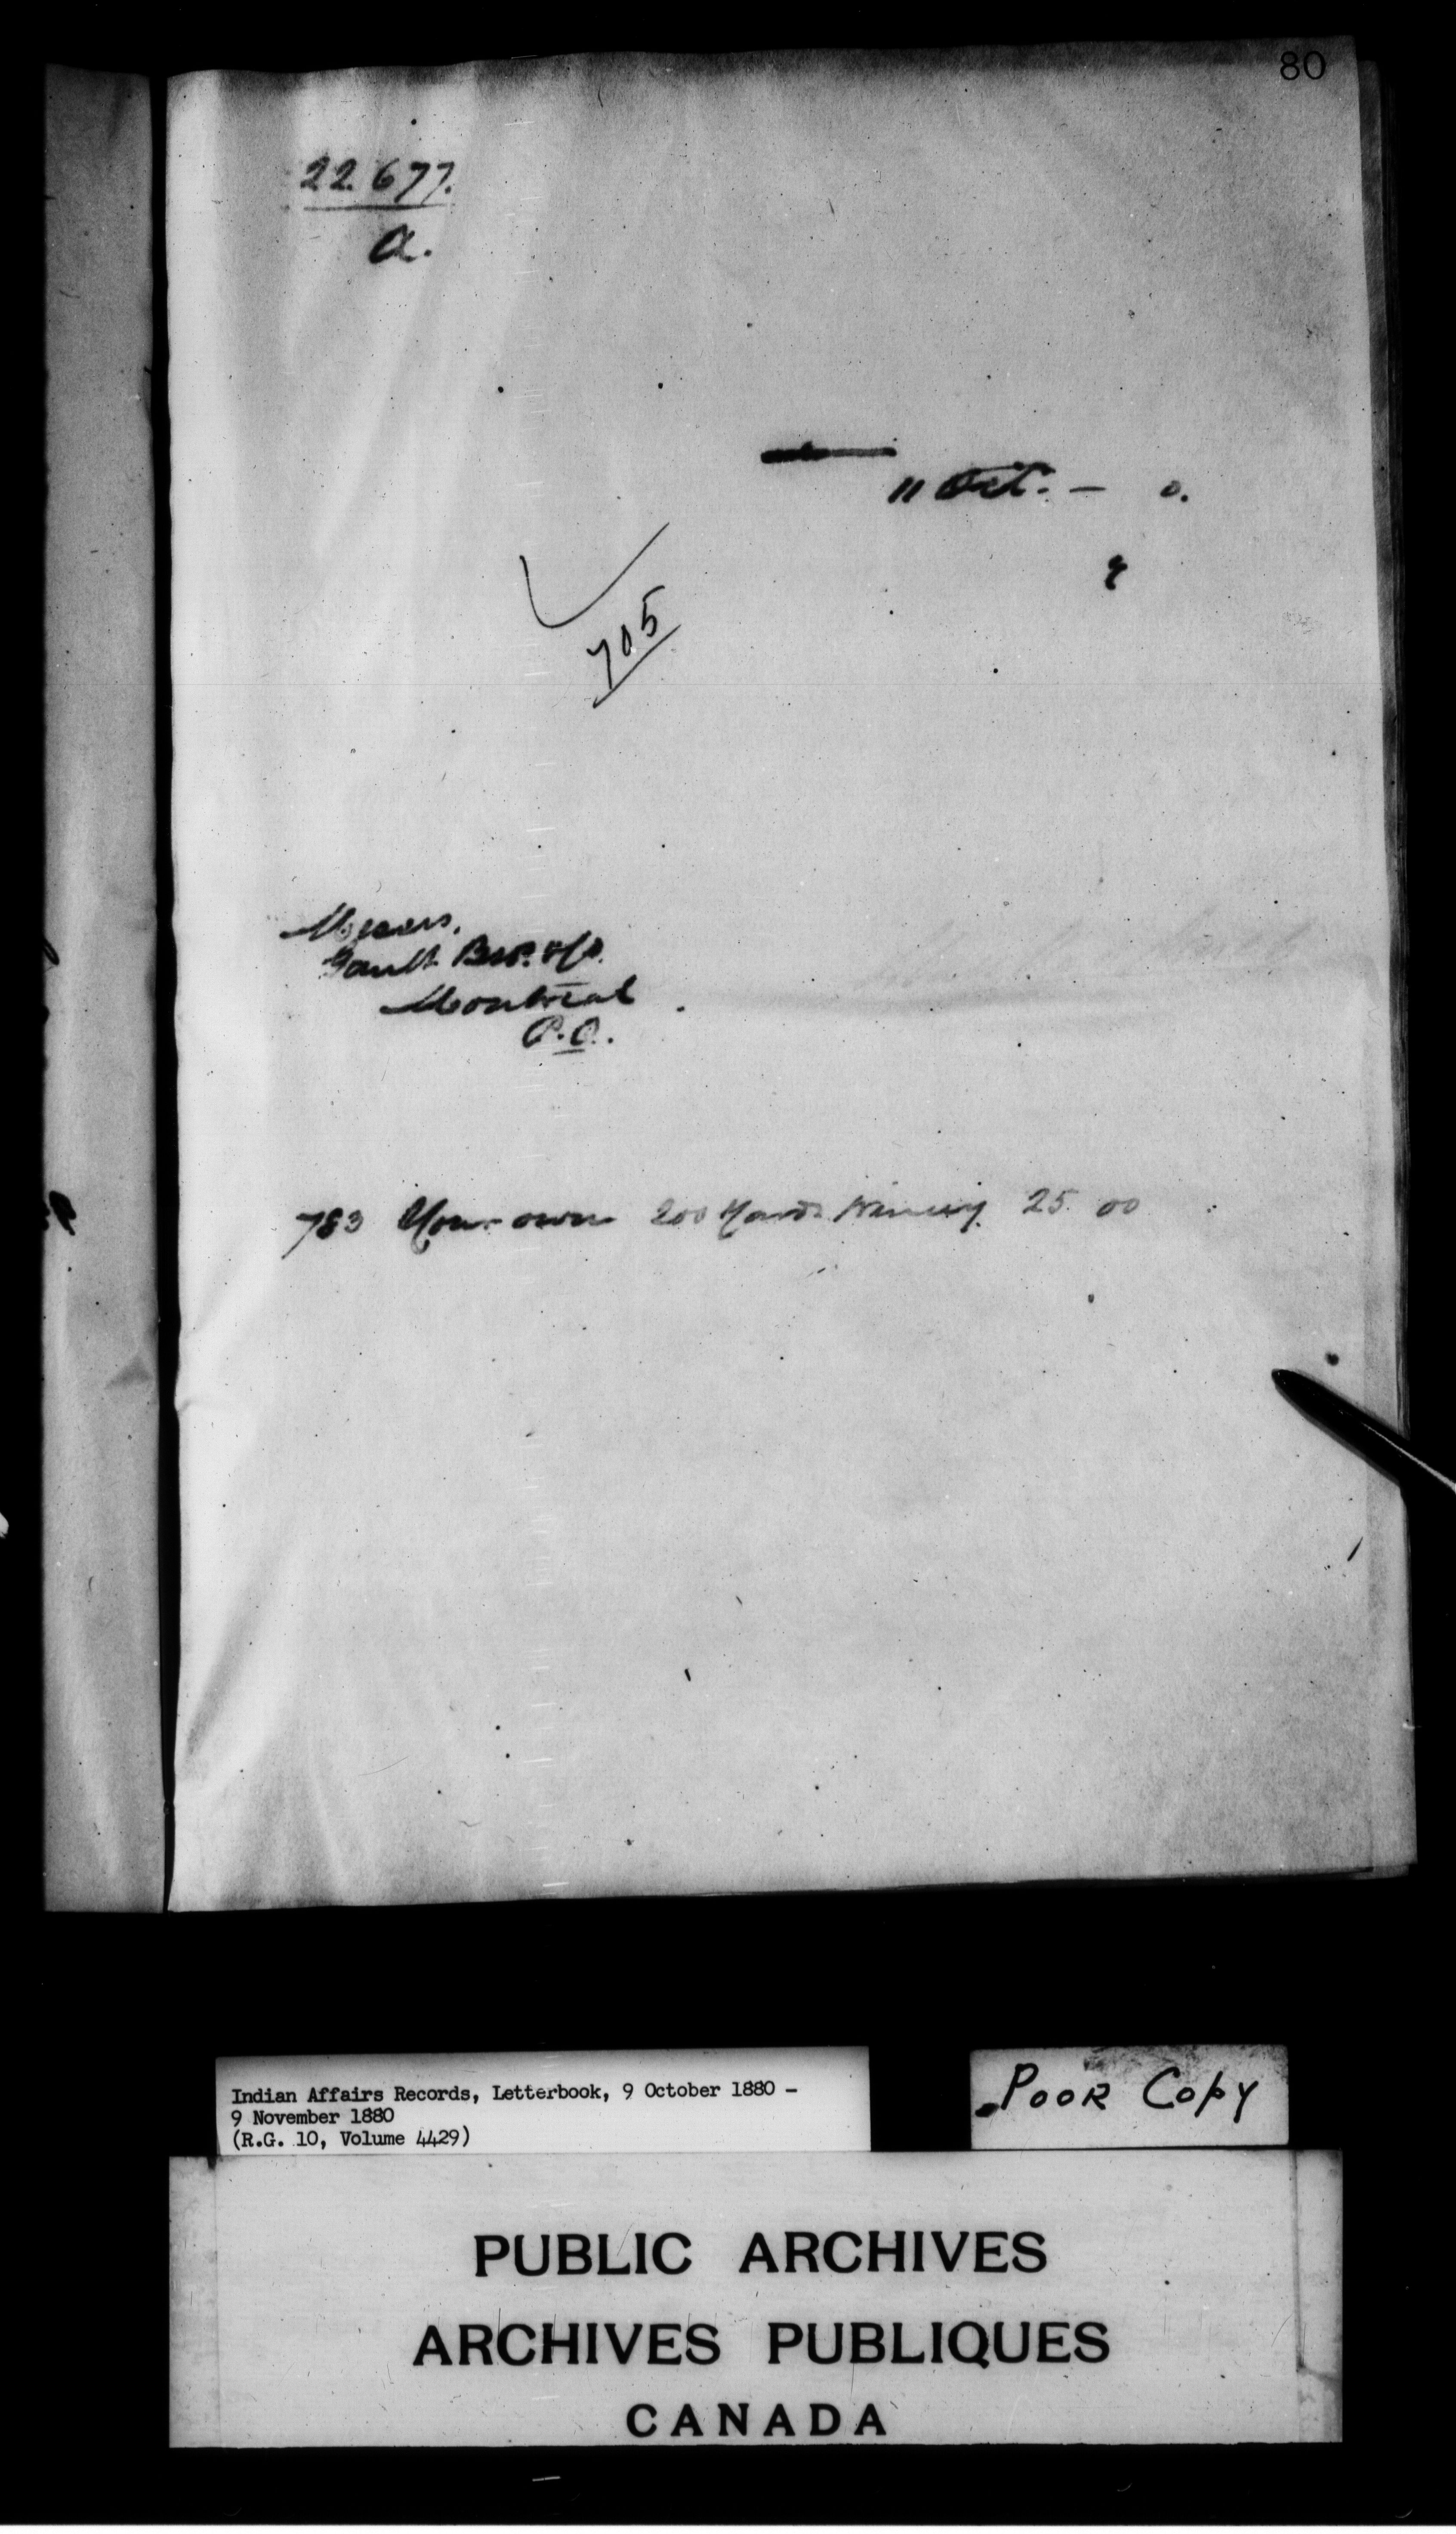 80
22.677.
a.
11 Oct. — 0.
705
Messrs.
Gault Bros. & Co.
Montreal
P.Q.
783 Your own 200 Yards Wincey 25.00
Indian Affairs Records, Letterbook, 9 October 1880 –
9 November 1880
(R.G. 10, Volume 4429)
Poor Copy
PUBLIC ARCHIVES
ARCHIVES PUBLIQUES
CANADA